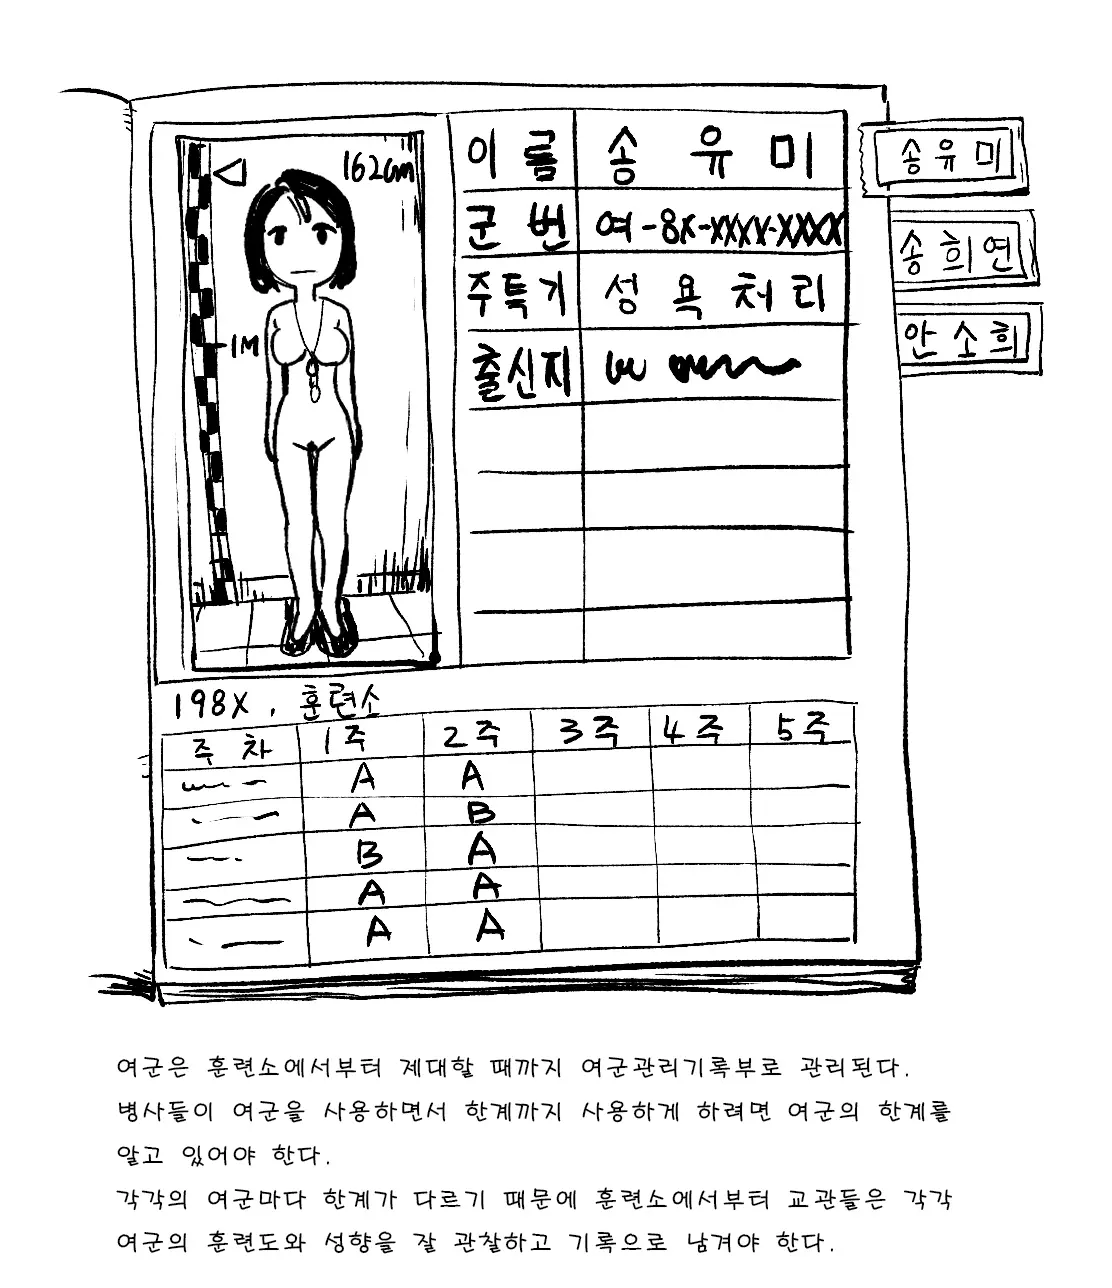 162cm
1M
이름 송유미
군번 여-8X-XXXX-XXXX
주특기 성욕처리
출신지
송유미
송희연
안소희
198X. 훈련소
주차 1주 2주 3주 4주 5주
A A
A B
B A
A A
A A
여군은 훈련소에서부터 제대할 때까지 여군관리기록부로 관리된다.
병사들이 여군을 사용하면서 한계까지 사용하게 하려면 여군의 한계를
알고 있어야 한다.
각각의 여군마다 한계가 다르기 때문에 훈련소에서부터 교관들은 각각
여군의 훈련도와 성향을 잘 관찰하고 기록으로 남겨야 한다.